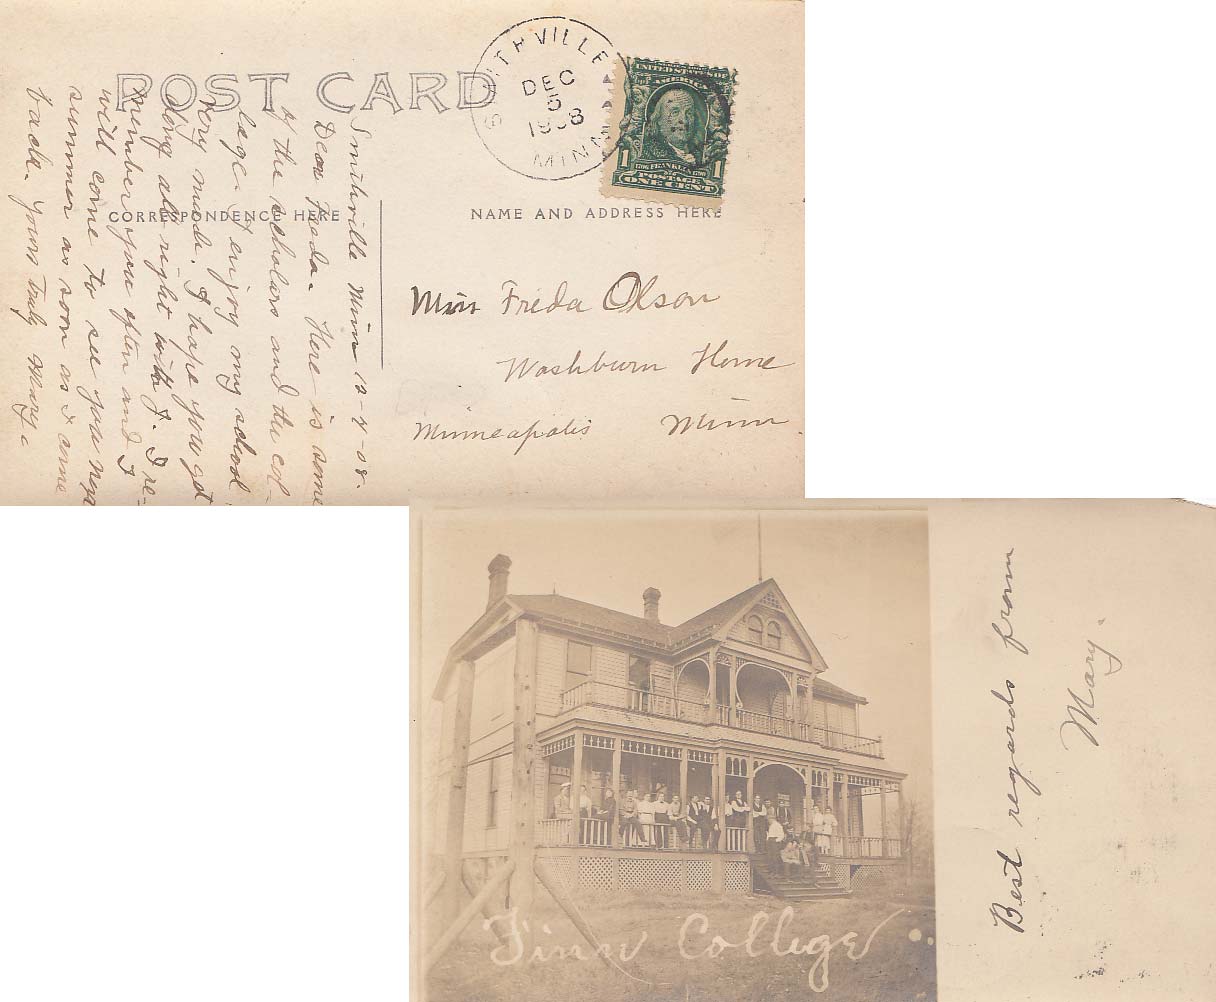 POST CARD
SMITHVILLE
DEC
5
1908
MINN
UNITED STATES OF
AMERICA
1706 FRANKLIN 1790
1 1
POSTAGE
ONE CENT
CORRESPONDENCE HERE
NAME AND ADDRESS HERE
Smithville Minn 12-4-08.
Dear Freda. Here is some
of the scholars and the col-
lege. I enjoy my school
very much. I hope you get
along all right with J. I re-
member you often and I
will come to see you nex
summer as soon as I come
back. Yours Truly Mary.
Miss Freda Olson
Washburn Home
Minneapolis Minn.
Finn College
Best regards from
Mary.